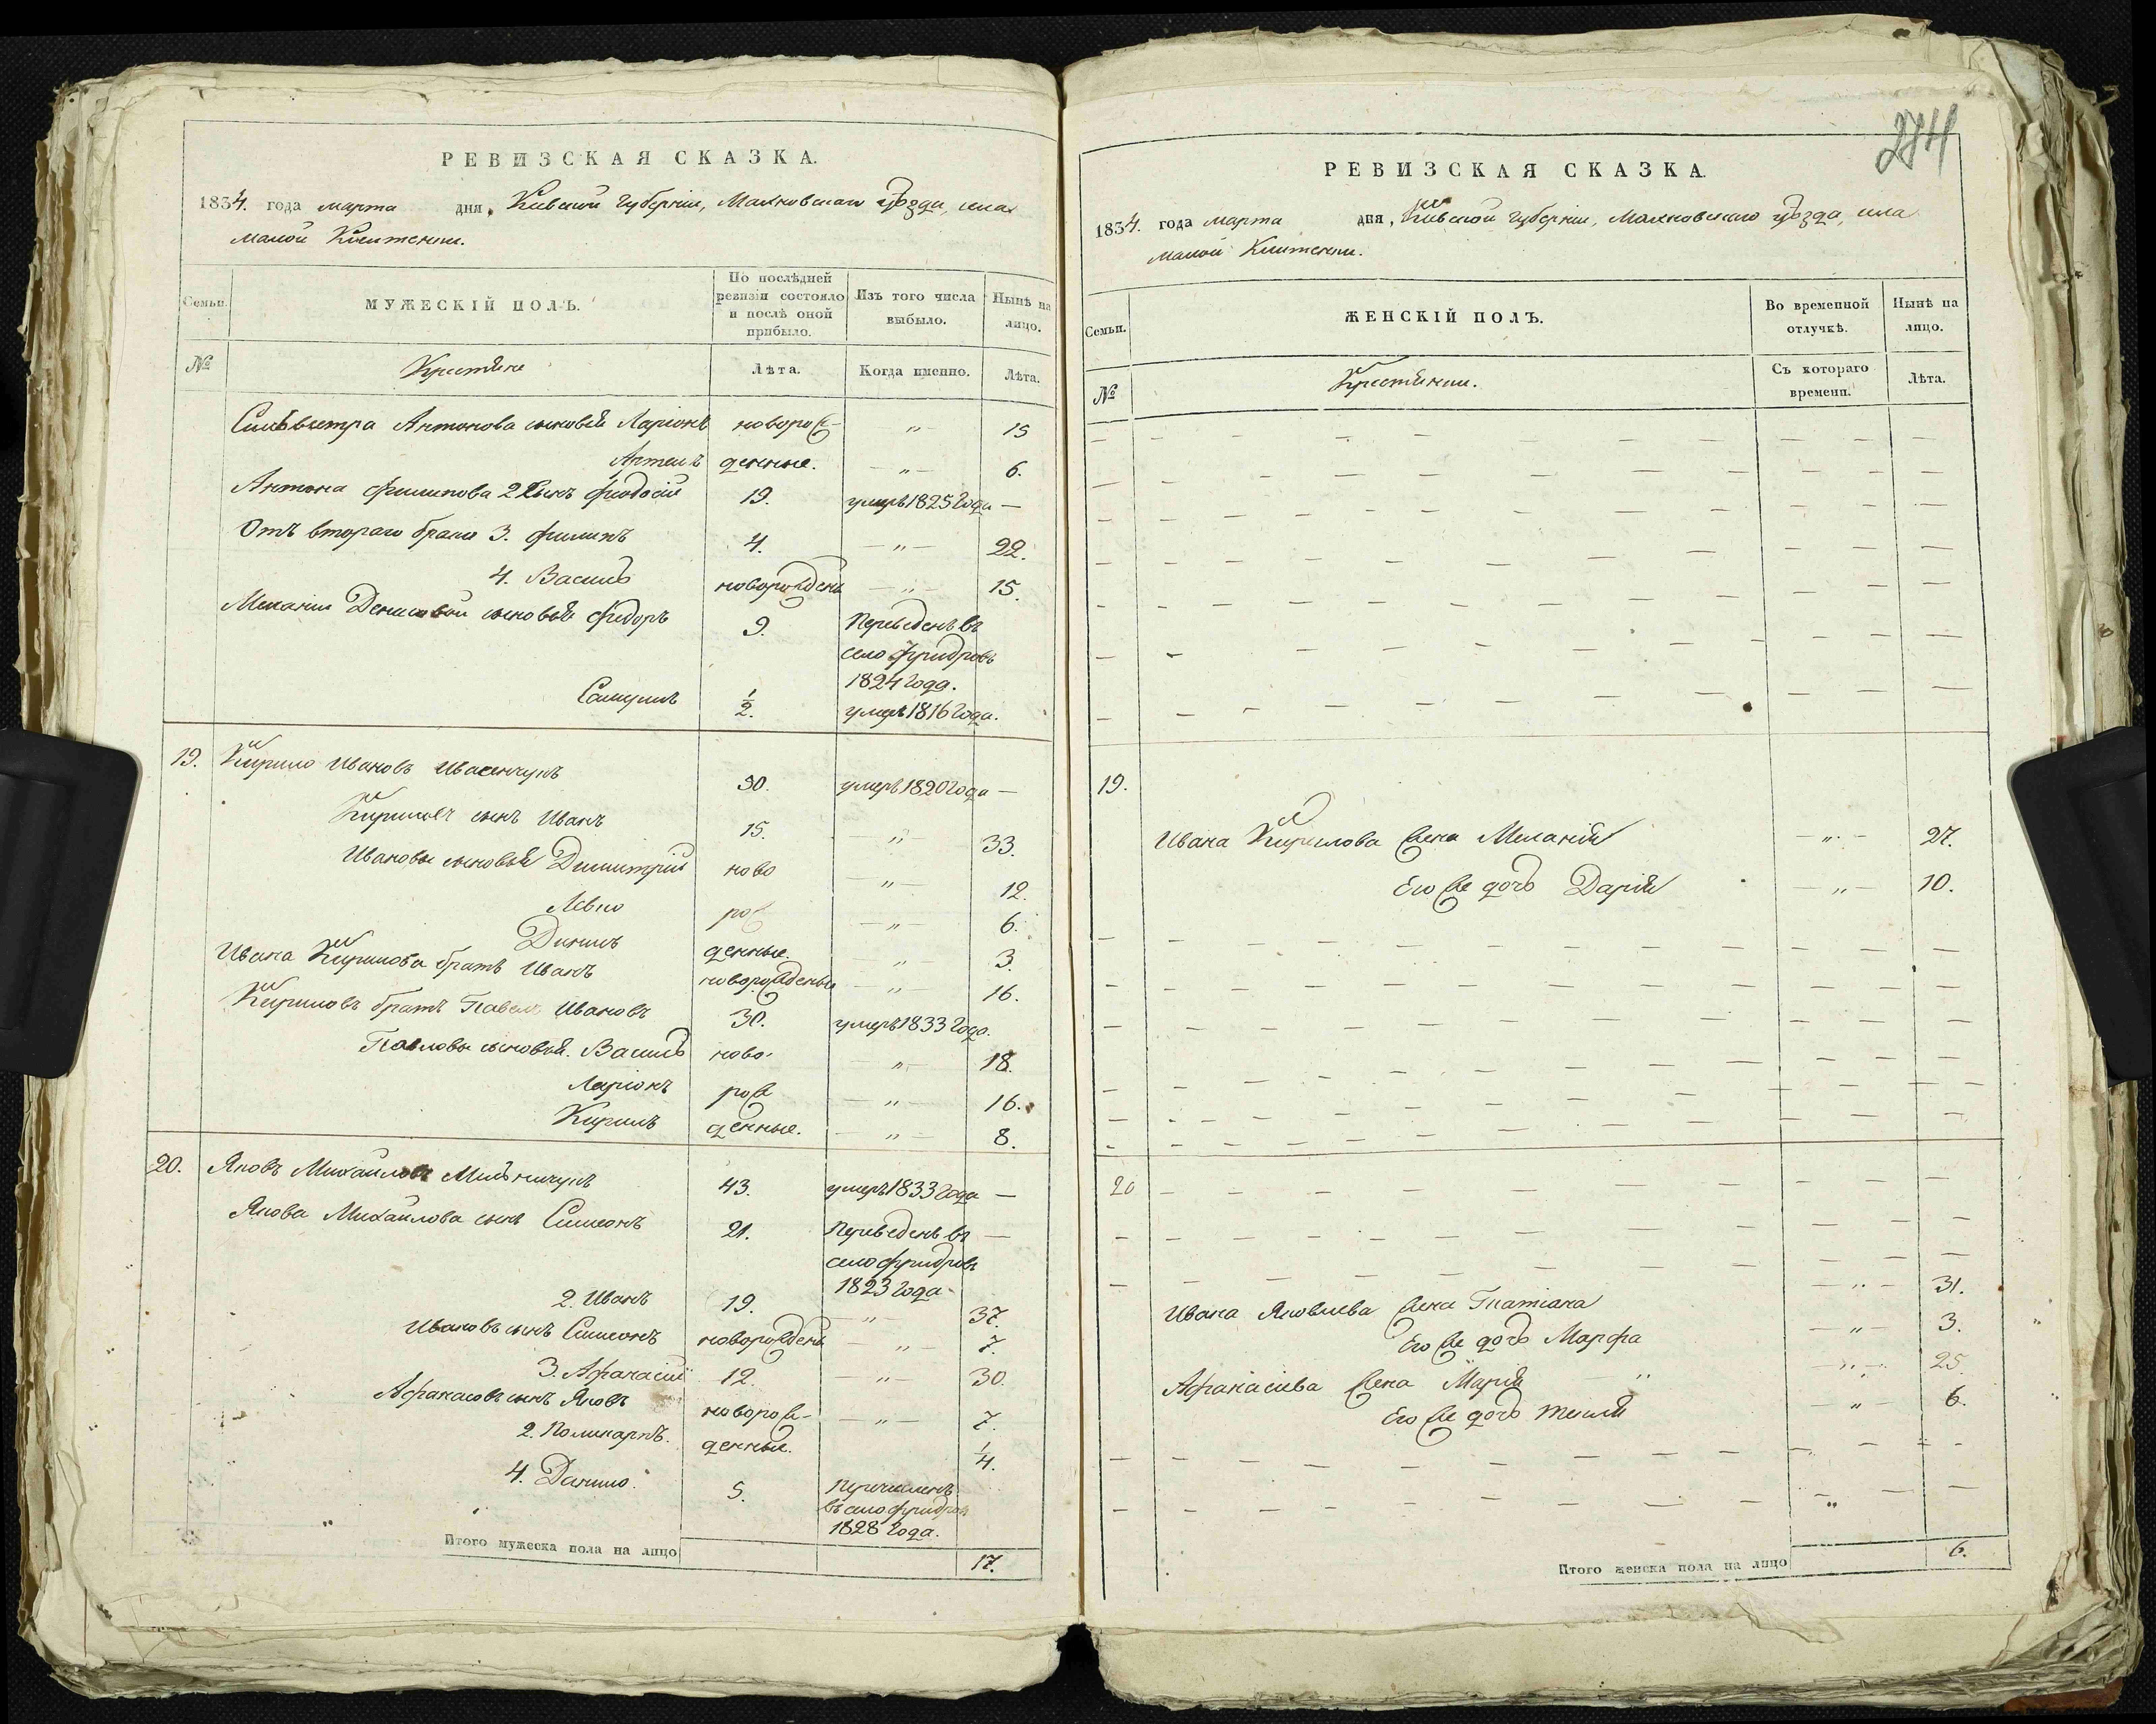 РЕВИЗСКАЯ СКАЗКА.
1834. года марта дня, Кіевской Губерніи, Махновскаго уѣзда, села
малой Клитенки.
Семьи.
МУЖЕСКІЙ ПОЛЪ.
По послѣдней ревизіи состояло и послѣ оной прибыло.
Изъ того числа выбыло.
Нынѣ на лицо.
№ Крестьяне Лѣта. Когда именно. Лѣта.
Сильвестра Антонова сыновья Ларіонъ новорож- „ 15
Артемъ денные. „ 6.
Антона Филипова 2 сынъ Феодосій 19. умеръ 1825 года —
Отъ втораго брака 3. Филипъ 4. „ 22.
4. Василь новорожденъ „ 15.
Меланіи Денисовой сыновья Федоръ 9. Переведенъ въ
село Фридровъ
1824 года.
Самуилъ 1/2. умеръ 1816 года.
19. Кирило Ивановъ 30. умеръ 1820 года —
Кириловъ сынъ Иванъ 15. „ 33.
Ивановы сыновья Димитрій ново „ 12.
Левко рож „ 6.
Данилъ денные. „ 3.
Ивана Кирилова братъ Иванъ новорожденый „ 16.
Кириловъ братъ Павелъ Ивановъ 30. умеръ 1833 года.
Павловы сыновья. Василь ново „ 18.
Ларіонъ рож „ 16.
Кирилъ денные. „ 8.
20. Яковъ Михайловъ Мельничукъ 43. умеръ 1833 года —
Якова Михайлова сынъ Симеонъ 21. Переведенъ въ —
село Фридровъ
1823 года
2. Иванъ 19. „ 37.
Ивановъ сынъ Симеонъ новорожденъ „ 7.
3. Афанасій 12. „ 30.
Афанасовъ сынъ Яковъ новорож- „ 7.
2. Поликарпъ. денные. 1/4.
4. Данило. 5. Перечисленъ
въ село Фридров
1828 года.
Итого мужеска пола на лицо 17.
РЕВИЗСКАЯ СКАЗКА.
1834. года марта дня, Кіевской Губерніи, Махновскаго уѣзда, села
малой Клитенки.
Семьи.
ЖЕНСКІЙ ПОЛЪ.
Во временной отлучкѣ.
Нынѣ на лицо.
№ Крестьянки. Съ котораго времени. Лѣта.
19.
Ивана Кирилова жена Меланія „ 27.
Его же дочь Дарія „ 10.
20
Ивана Яковлева жена Татіана „ 31.
Его же дочь Марфа „ 3.
Афанасіева жена Марія „ 25
Его же дочь Текля „ 6.
Итого женска пола на лицо 6.